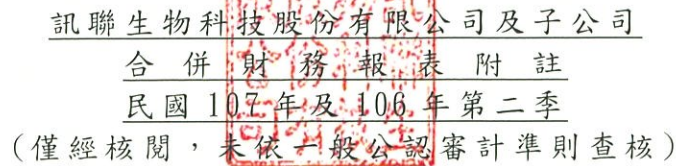 訊聯生物科技股份有限公司及子公司
合併財務報表附註
民國 107 年及 106 年第二季
(僅經核閱，未依一般公認審計準則查核)